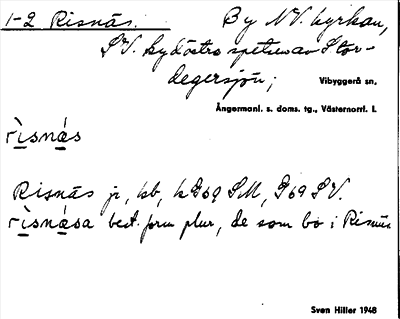 1-2 Risnäs. By NV. kyrkan,
SV. sydöstra spetsen av Stor-
degersjön; Vibyggerå sn.
Ångermanl. s. doms. tg., Västernorrl. l.
rìsnás
Risnäs jr, kb, k G69 SM, G69 SV.
rìsnása best. form plur, de som bo i Risnäs
Sven Hiller 1948